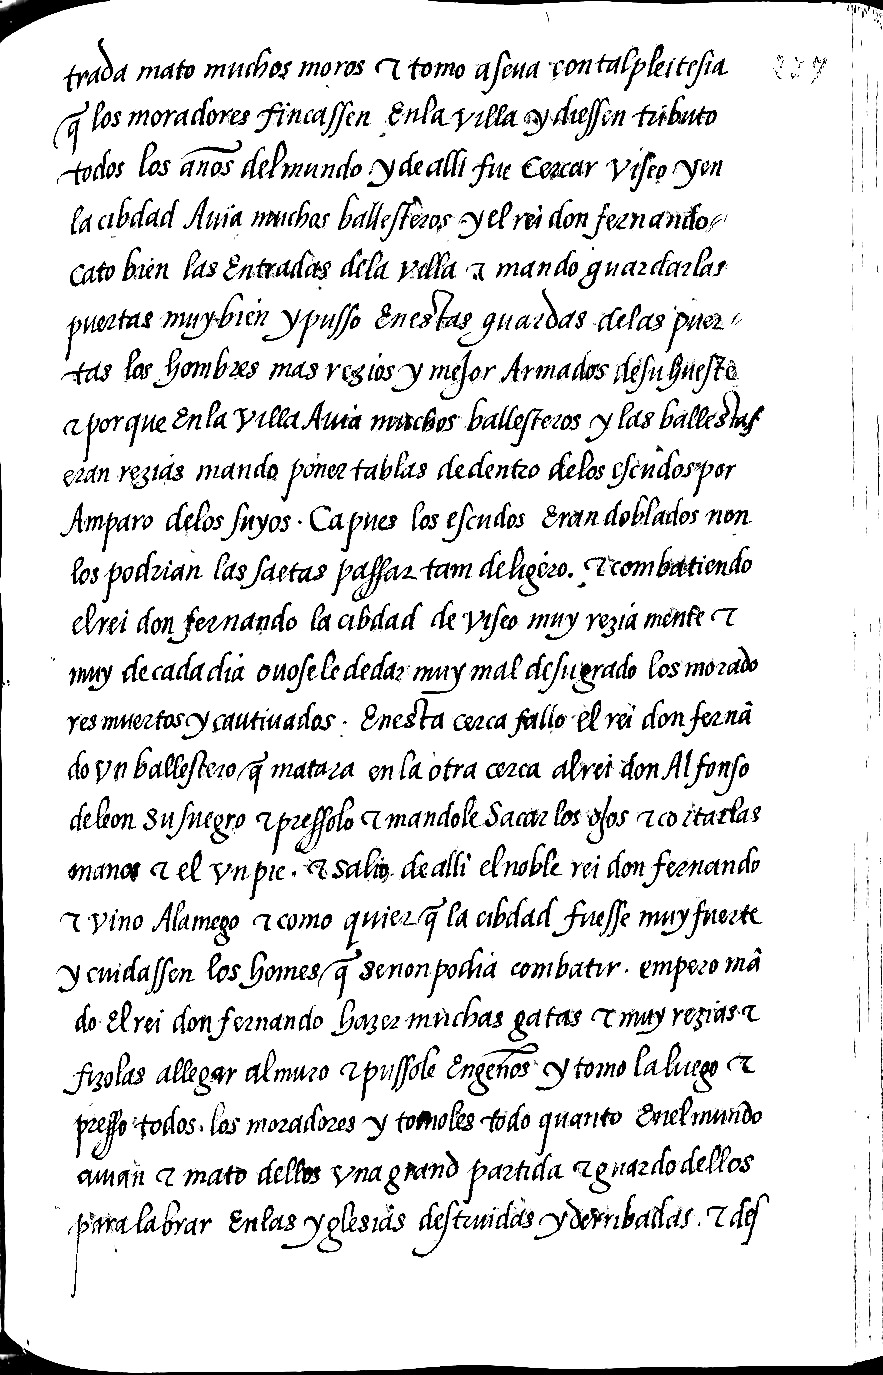 trada mato muchos moros τ tomo a seua con tal pleitesia 237
q̃ los moradores fincassen En la villa y diessen tributo
todos los años del mundo y de alli fue Cercar viseo y en
la cibdad Auia muchos ballesteros y el rei don fernando
Cato bien las Entradas dela villa τ mando guardar las
puertas muy bien y pusso En estas guardas delas puer-
tas los hombres mas rezios y mejor Armados de su hueste
τ porque En la Villa Auia muchos ballesteros y las ballestas
eran rezias mando poner tablas de dentro delos escudos por
Amparo delos suyos. Ca pues los escudos Eran doblados non
los podrian las saetas passar tam de ligero. τ combatiendo
el rei don fernando la cibdad de viseo muy rezia mente τ
muy de cada dia ouosele de dar muy mal de su grado los morado
res muertos y cautiuados. En esta cerca fallo el rei don fernã
do vn ballestero q̃ matara en la otra cerca al rei don Alfonso
de leon su suegro τ pressolo τ mandole Sacar los ojos τ cortar las
manos τ el vn pie. τ salio de alli el noble rei don fernando
τ vino Alamego τ como quier q̃ la cibdad fuesse muy fuerte
y cuidassen los homes q̃ se non podia combatir. empero mã
do El rei don fernando hazer muchas gatas τ muy rezias τ
fizolas allegar al muro τ pussole Engeños y tomo la luego τ
presso todos los moradores y tomoles todo quanto En el mundo
auian τ mato dellos vna grand partida τ guardo dellos
para labrar En las yglesias destruidas y derribadas. τ des